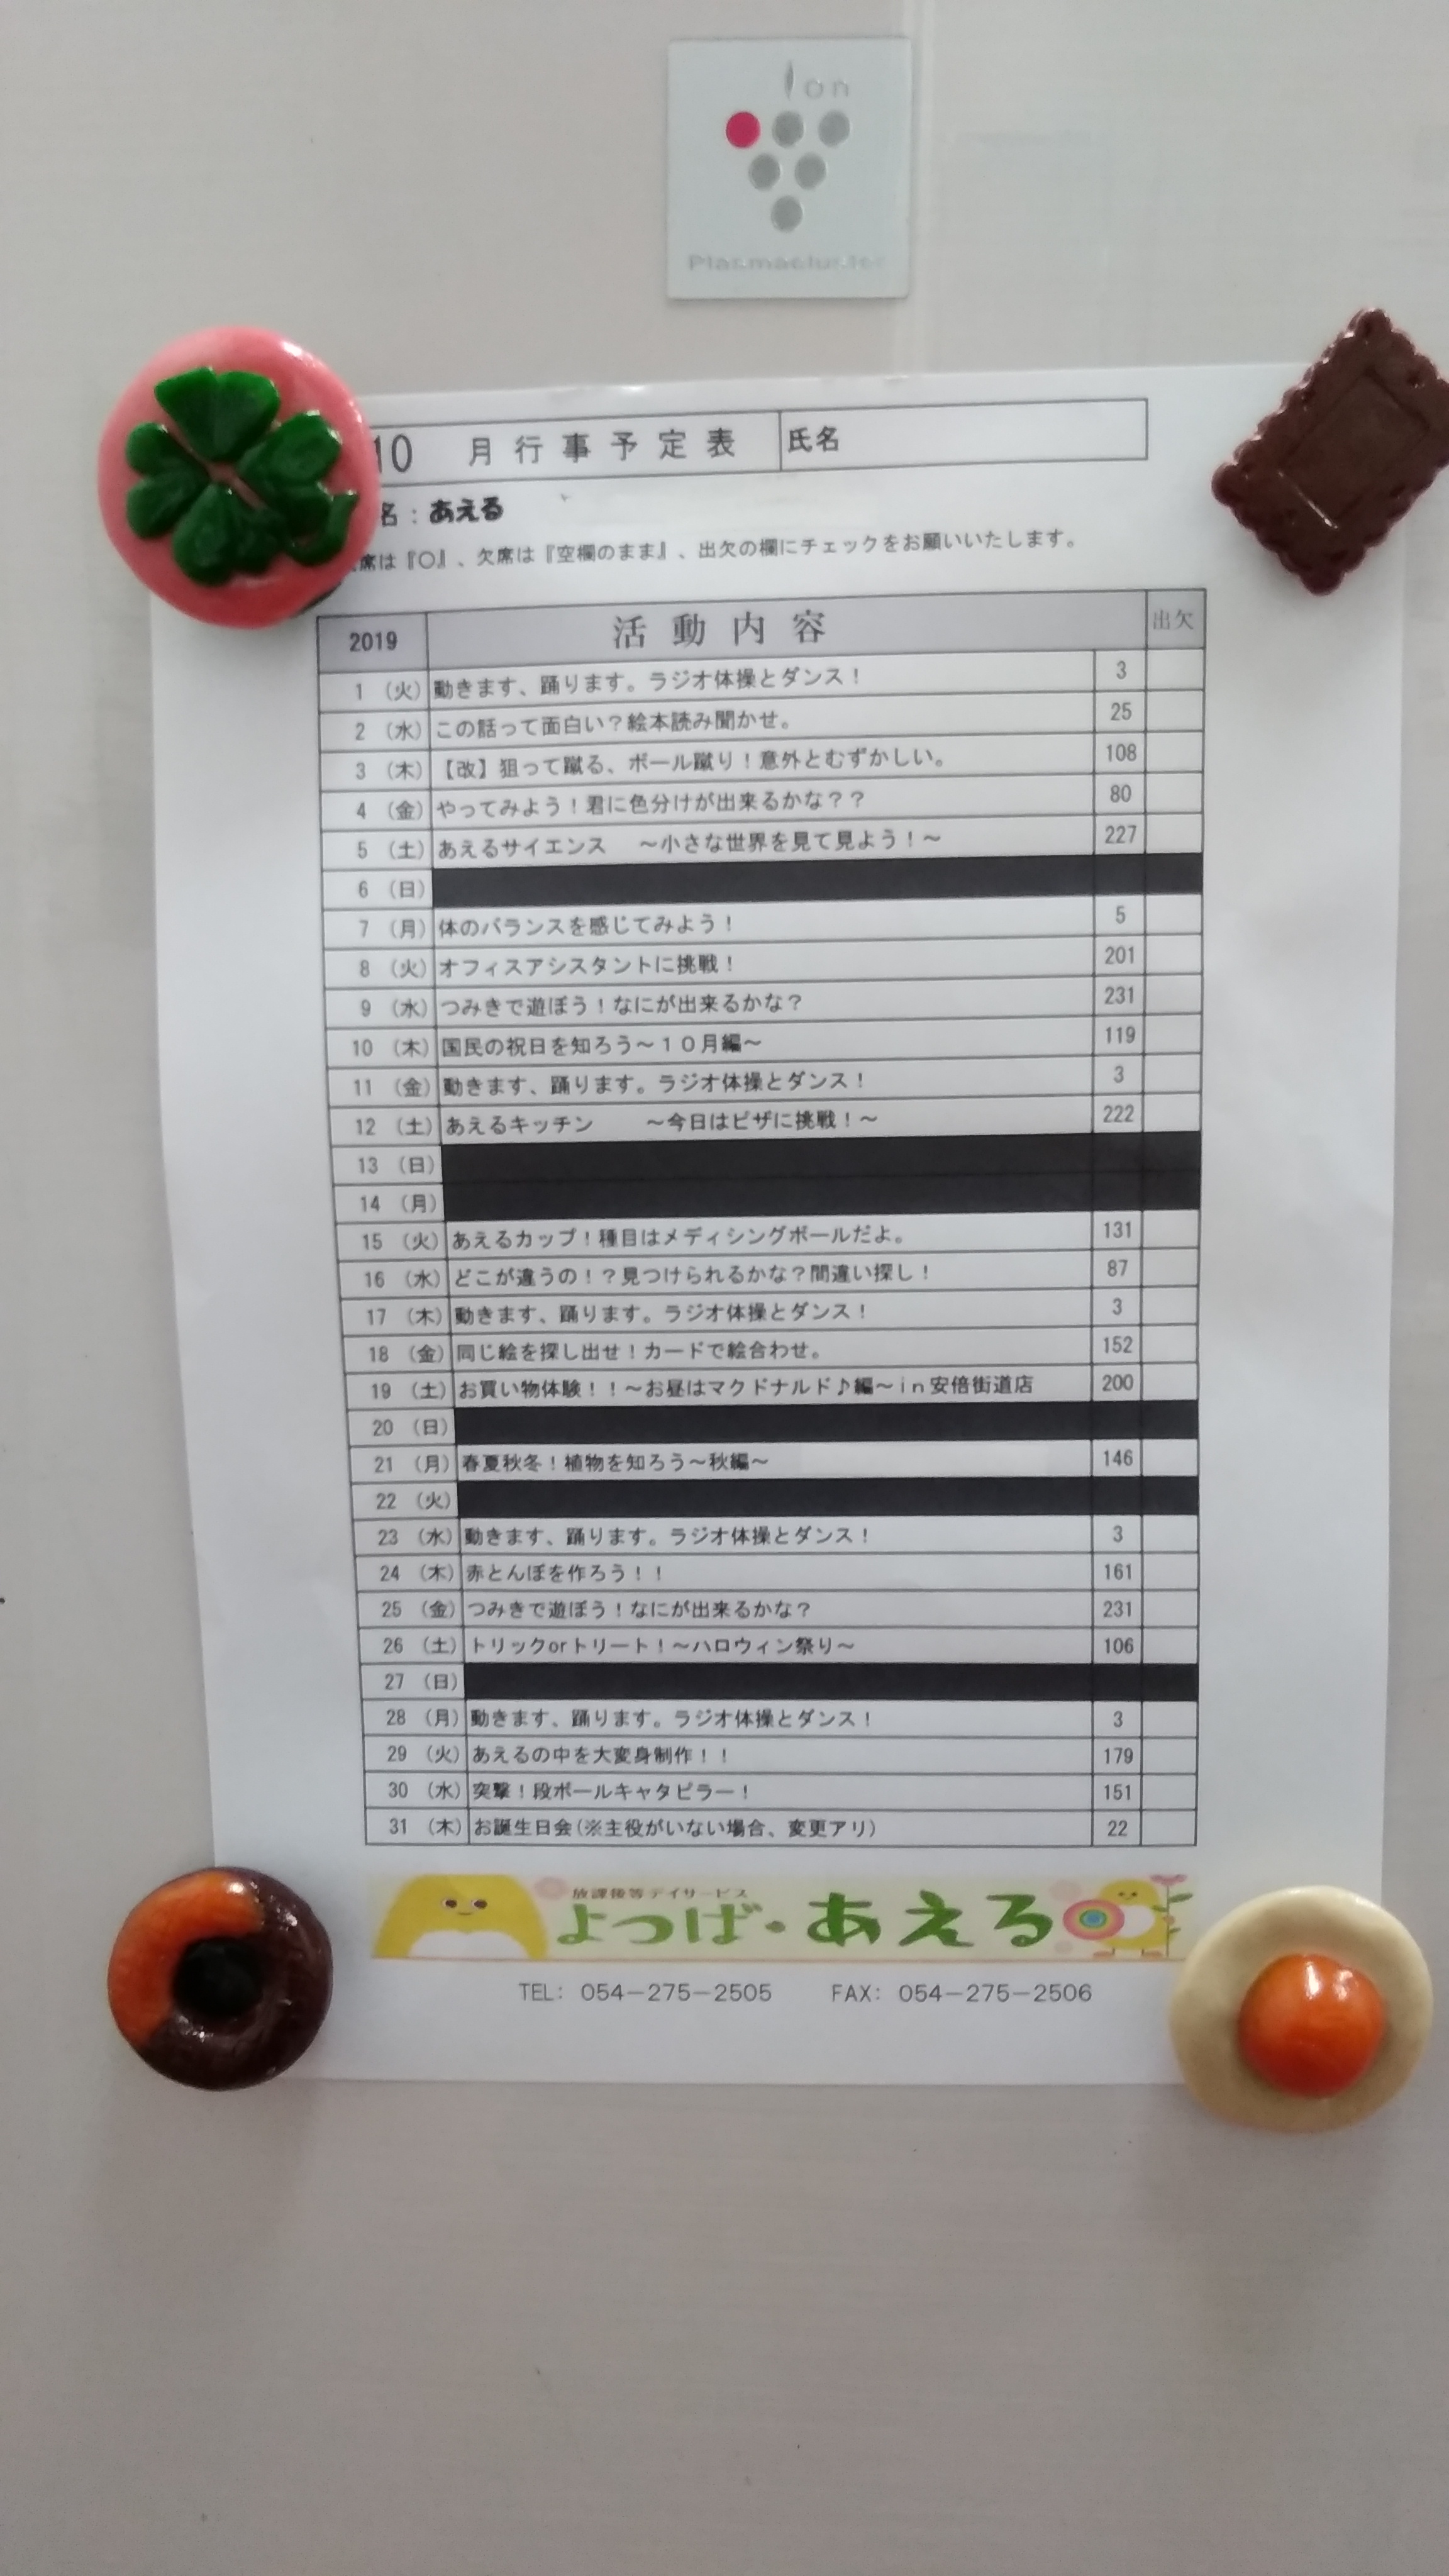 Ion
Plasmacluster
10 月行事予定表 氏名
名：あえる
席は『〇』、欠席は『空欄のまま』、出欠の欄にチェックをお願いいたします。
2019 活動内容 出欠
1 (火) 動きます、踊ります。ラジオ体操とダンス！ 3
2 (水) この話って面白い？絵本読み聞かせ。 25
3 (木) 【改】狙って蹴る、ボール蹴り！意外とむずかしい。 108
4 (金) やってみよう！君に色分けが出来るかな？？ 80
5 (土) あえるサイエンス ～小さな世界を見て見よう！～ 227
6 (日)
7 (月) 体のバランスを感じてみよう！ 5
8 (火) オフィスアシスタントに挑戦！ 201
9 (水) つみきで遊ぼう！なにが出来るかな？ 231
10 (木) 国民の祝日を知ろう～１０月編～ 119
11 (金) 動きます、踊ります。ラジオ体操とダンス！ 3
12 (土) あえるキッチン ～今日はピザに挑戦！～ 222
13 (日)
14 (月)
15 (火) あえるカップ！種目はメディシングボールだよ。 131
16 (水) どこが違うの！？見つけられるかな？間違い探し！ 87
17 (木) 動きます、踊ります。ラジオ体操とダンス！ 3
18 (金) 同じ絵を探し出せ！カードで絵合わせ。 152
19 (土) お買い物体験！！～お昼はマクドナルド♪編～ｉｎ安倍街道店 200
20 (日)
21 (月) 春夏秋冬！植物を知ろう～秋編～ 146
22 (火)
23 (水) 動きます、踊ります。ラジオ体操とダンス！ 3
24 (木) 赤とんぼを作ろう！！ 161
25 (金) つみきで遊ぼう！なにが出来るかな？ 231
26 (土) トリックorトリート！～ハロウィン祭り～ 106
27 (日)
28 (月) 動きます、踊ります。ラジオ体操とダンス！ 3
29 (火) あえるの中を大変身制作！！ 179
30 (水) 突撃！段ボールキャタピラー！ 151
31 (木) お誕生日会(※主役がいない場合、変更アリ) 22
放課後等デイサービス
よつば・あえる
TEL: 054－275－2505 FAX: 054－275－2506